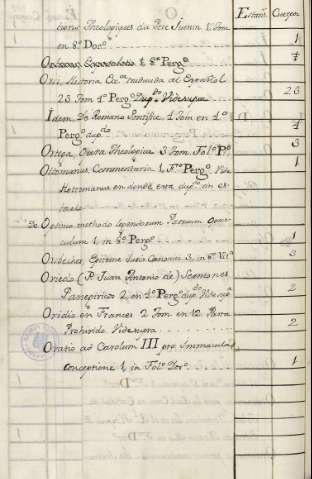 Estañ. Cuerpos
tions Theologiques du Pere Juenin 1. Tom.
en 8º Docº 1
8º Pergº
Orsi, Historia Ecca. traducida al Español
23 Tom 4º Pergº Dupdo Vide supra 23
Idem De Romano Pontifice 4 Tom en 4º
Pergº dupdo 4
Ortega, Opera Theologica 3 Tom. Folº Pº 3
Ottomanus Commentaria 1, Fº Pergº Vide
Hottomanus en donde está dupdo en es-
1
De Optima methodo legendorum Patrum Opus-
culum 1, in 8º Pergº 1
Epitome 3, in 8º 3
Oviedo (P. Juan Antonio de) Sermones
Panegiricos 2, en 4º Pergº dupdo Vide supª 2
Ovidio en Frances 2 Tom. en 12 Pasta
Prohivido Vide supra 2
Oratio ad Carolum III pro Immaculata
Conceptione 1, in Folº 1